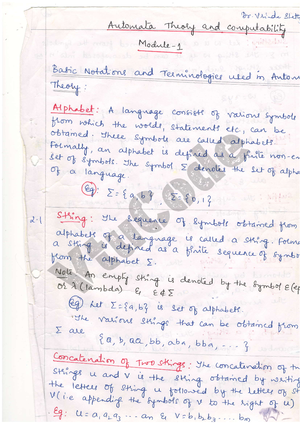 Dr. Vrinda
Automata Theory and computability
Module-1
Basic Notations and Terminologies used in Autom
Theory:
Alphabet: A language consists of various symbols
from which the words, statements etc, can be
obtained. These symbols are called alphabets.
Formally, an alphabet is defined as a finite non-em
set of symbols. The symbol Σ denotes the set of alpha
of a language.
Eg Σ={a,b} Σ={0,1}
2-1 String: The sequence of symbols obtained from
alphabets of a language is called a string. Forma
a string is defined as a finite sequence of symbo
from the alphabet Σ.
Note: An empty string is denoted by the symbol ε(ep
or λ(lambda) &, ε∉Σ
eg Let Σ={a,b} is set of alphabets.
The various strings that can be obtained from
Σ are
{a, b, aa, bb, aba, bba, ...}
Concatenation of Two Strings: The concatenation of th
strings u and v is the string obtained by writing
the letters of string u followed by the letters of st
v (i.e appending the symbols of v to the right of u)
Eg: u=a₁a₂a₃ ... an & v=b₁b₂b₃ ... bn